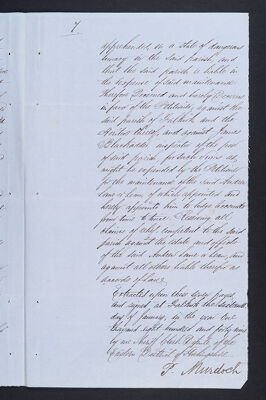 7
apprehended in a state of dangerous
lunacy in the said parish, and
that the said parish is liable in
the expense of said maintenance
Therefore Decerned and hereby Decerns
in favor of the Petitioner, against the
said parish of Falkirk and the
Heritors thereof, and against James
Blackadder inspector of the poor
of said parish for such sums as
might be expended by the Petitioner
for the maintenance of the said Andrew
a lunatic, of which appointed and
hereby appoints him to lodge accounts
from time to time. Reserving all
claims of relief competent to the said
parish against the estate and effects
of the said Andrew a lunatic, and
against all others liable therefor as
accords of Law.
Extracted upon these pages
and signed at Falkirk the
day of January, in the year one
thousand eight hundred and forty nine
by me Clerk of the
Eastern District of Stirlingshire
T. Murdoch